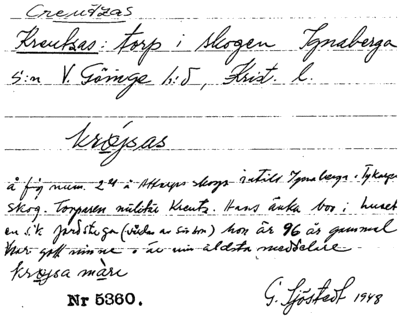 Creutzas
Kreutzas: torp i skogen Ignaberga
s:n V. Göinge h:d, Krist. l.
krø̄jsas
å fig num. 24 å Attarps skogs intill Ignaberga
skog. Torparen militär Kreutz. Hans änka bor i huset
en s.k jordstuga ( av sin son) hon är 96 år gammal
har gott minne o är min äldsta meddelare
krøjsa
Nr 5360.
G. Sjöstedt 1948